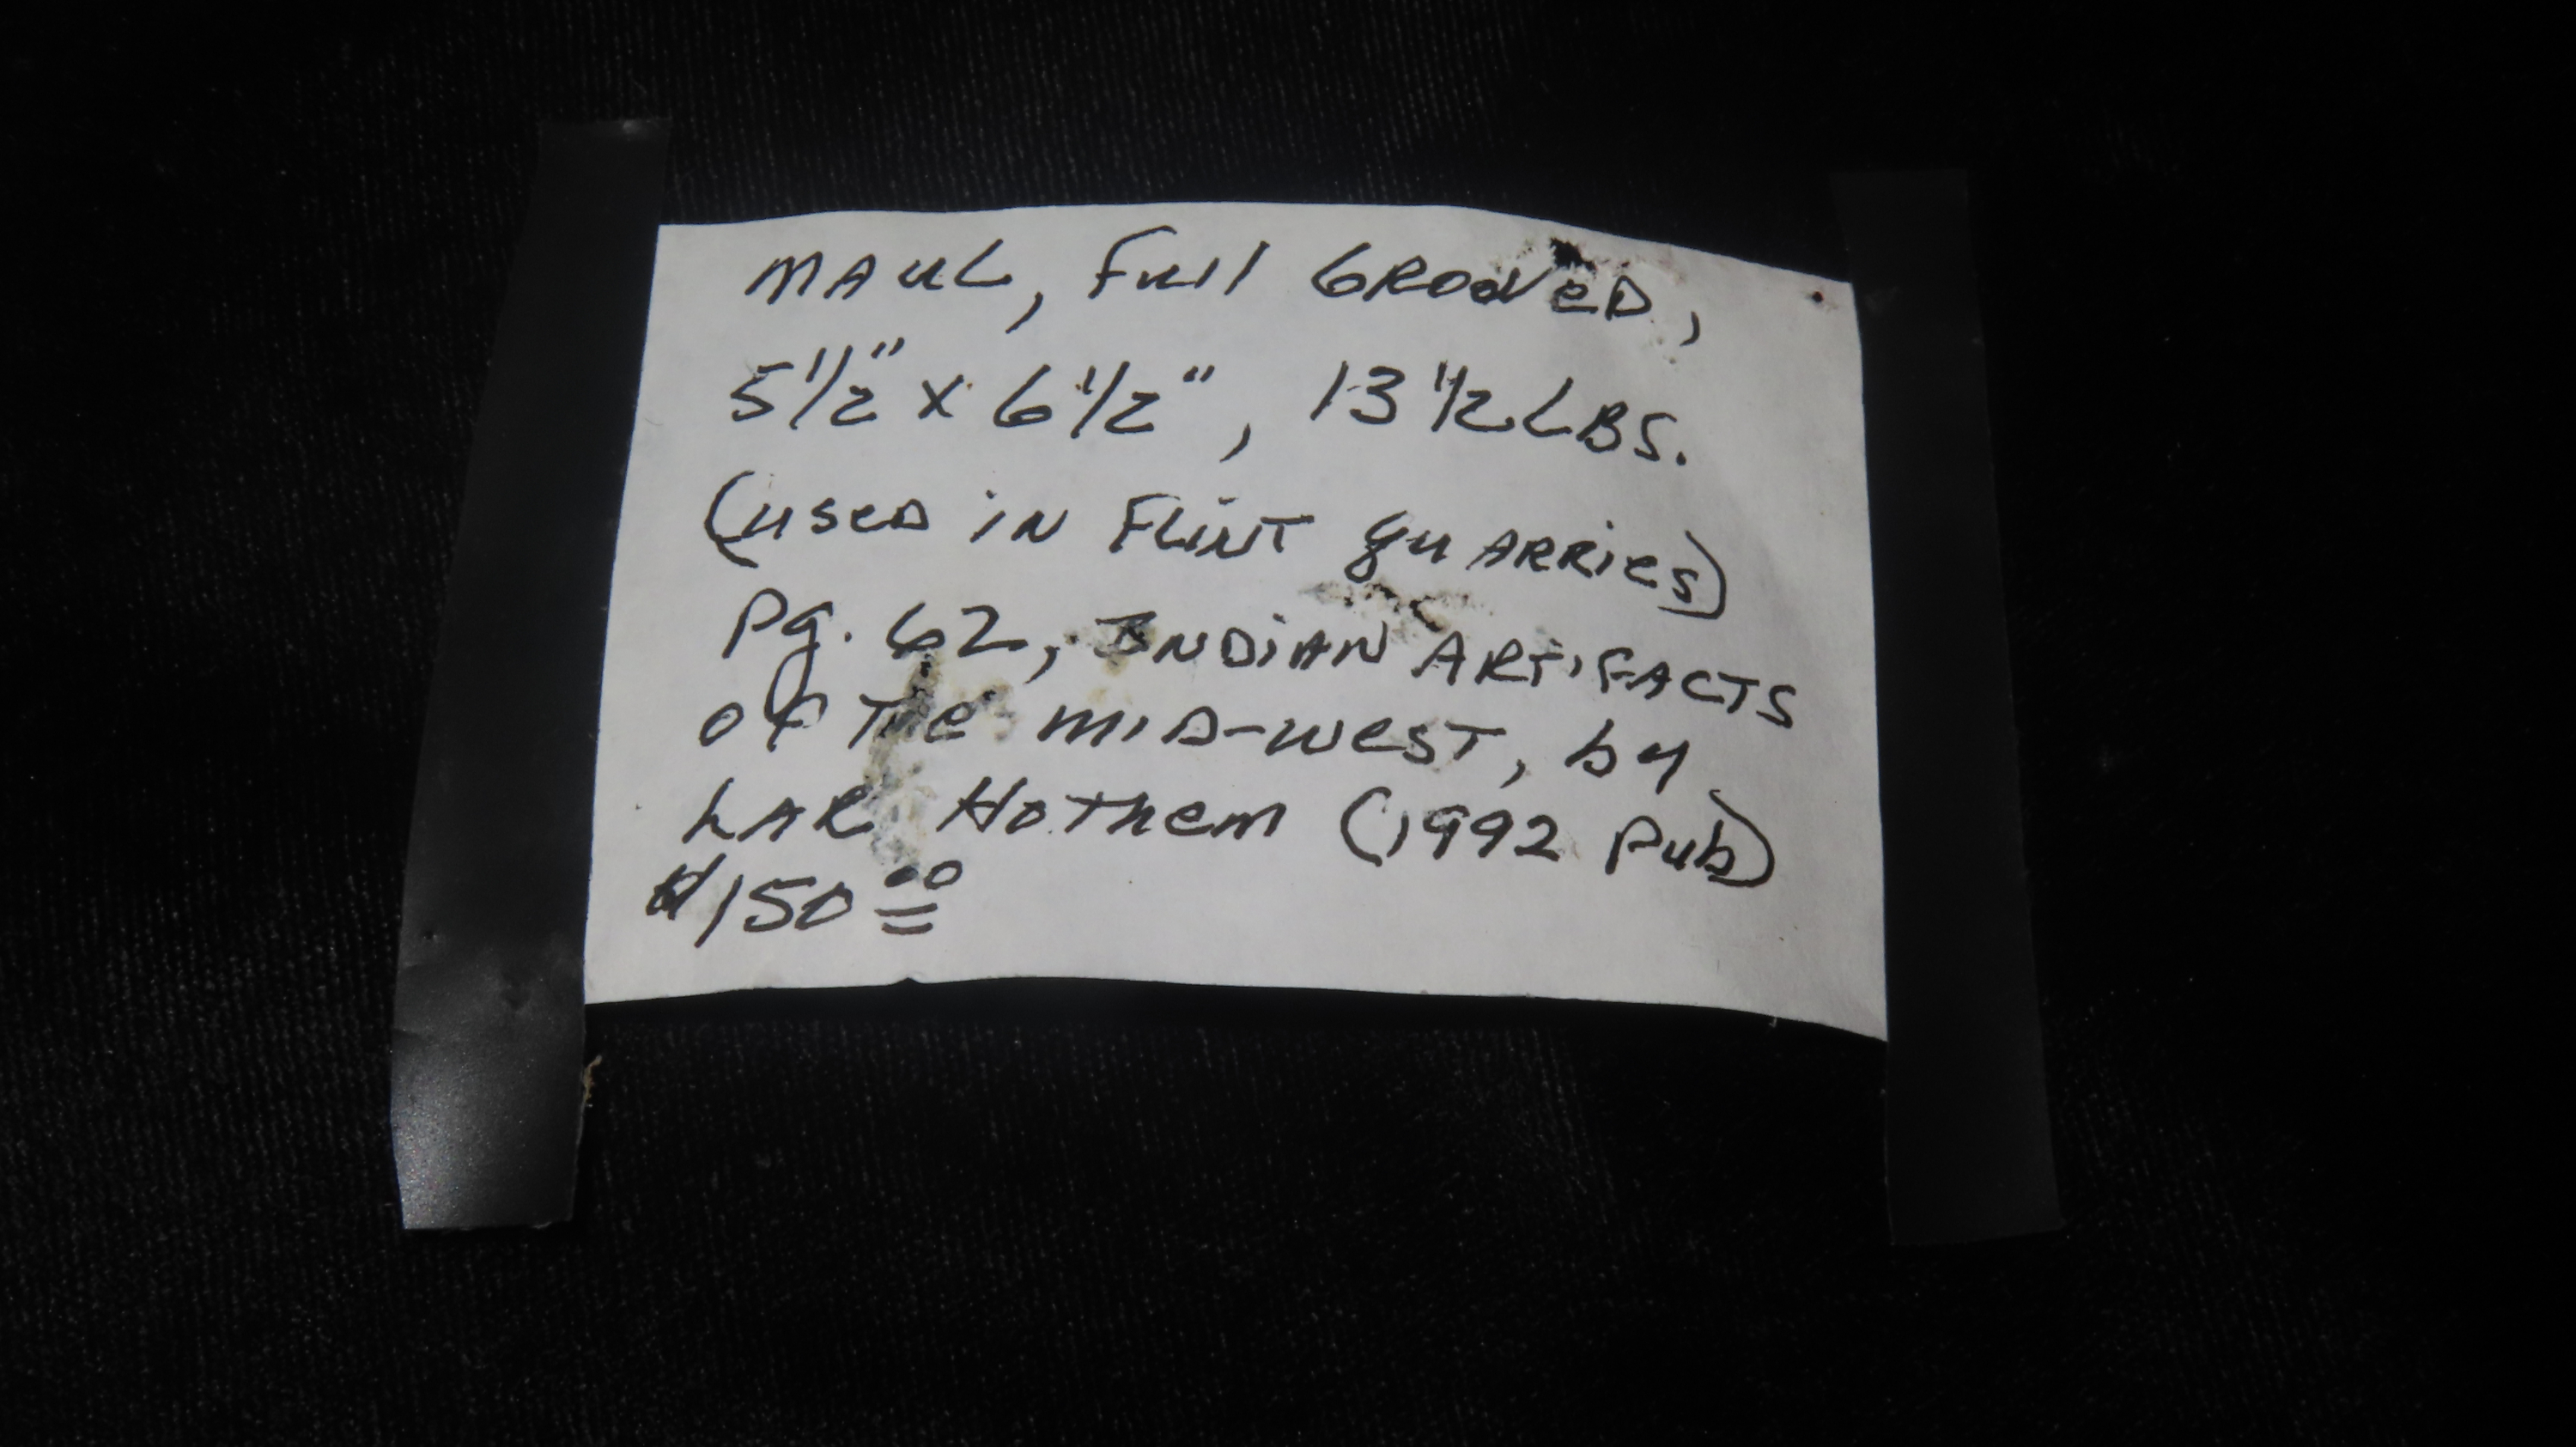 MAUL, Full GROOVeD,
5 1/2" x 6 1/2", 13 1/2 LBS.
(useD iN FLiNT quARRies)
Pg. 62, INDiAN ARTiFACTS
of THe MiD-WesT, by
LAR Hothem (1992 Pub)
$150.00